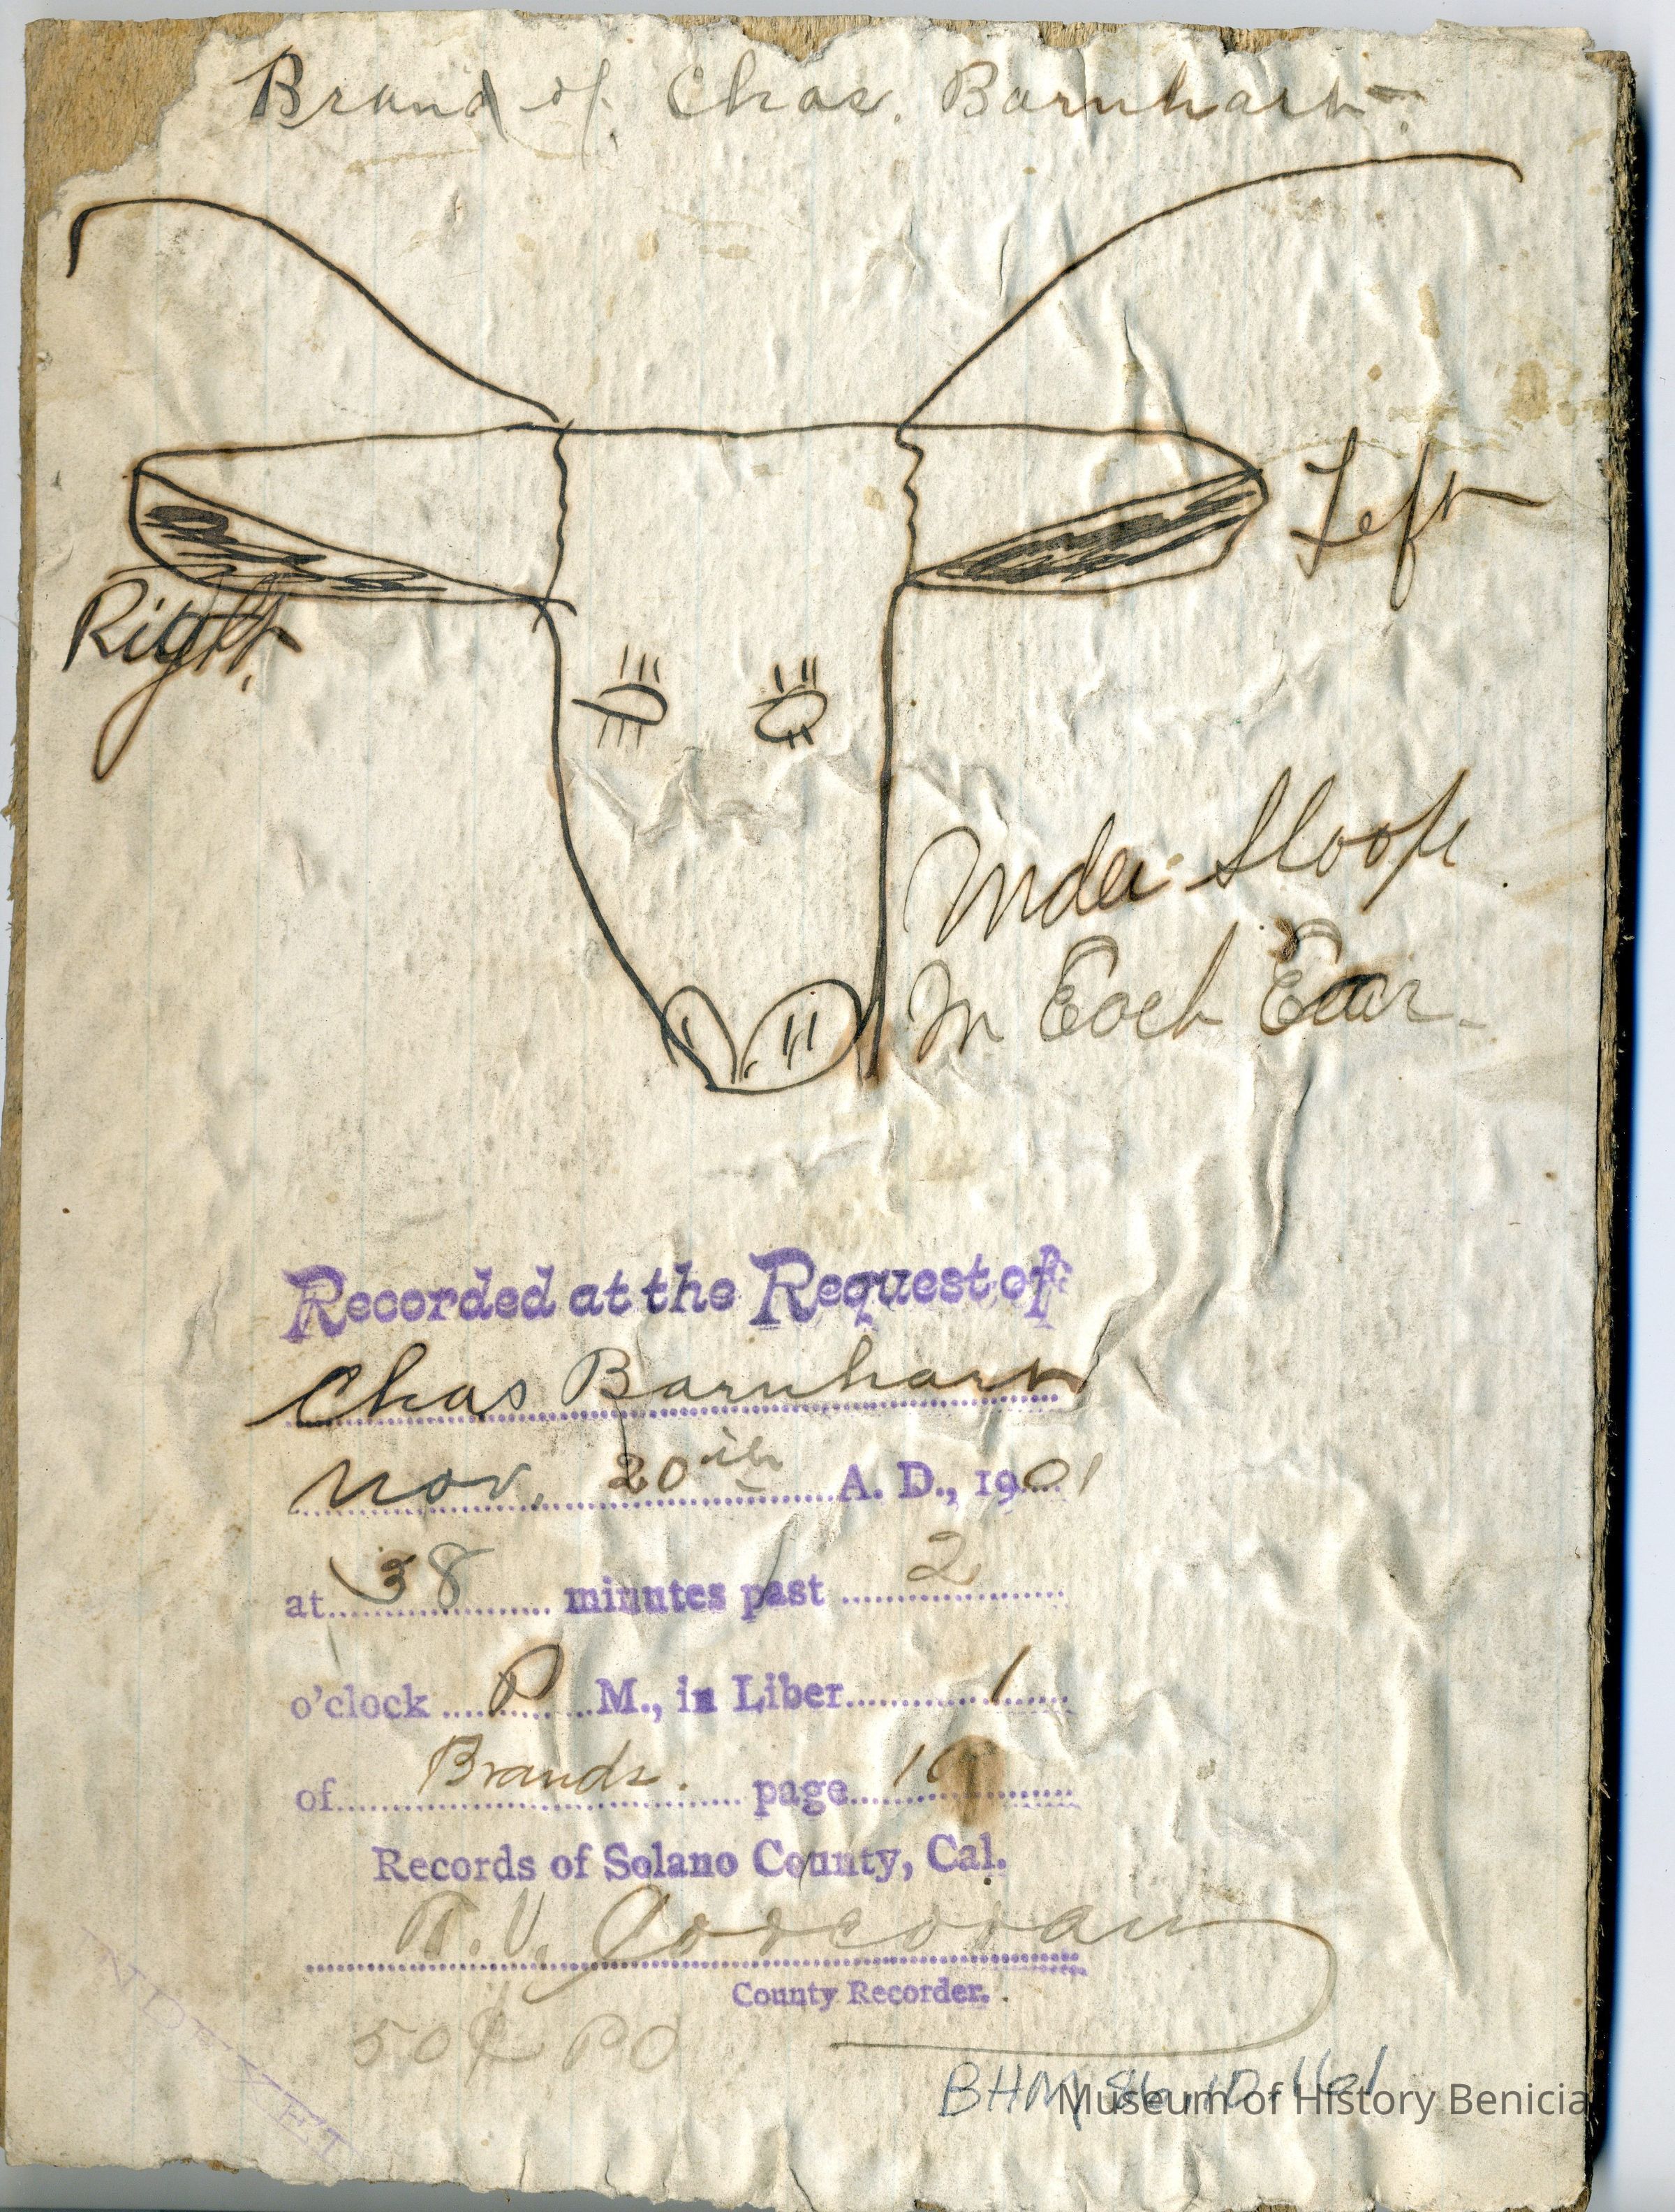 Brand of Chas. Barnhart.
Left
Right.
Under Sloope
In Each Ear
Recorded at the Request of
Chas Barnhart
Nov. 20th A. D., 1901
at 38 minutes past 2
o'clock P M., in Liber 1
of Brands. page
Records of Solano County, Cal.
Corcoran
County Recorder.
50¢ PD
BHM
Museum of History Benicia